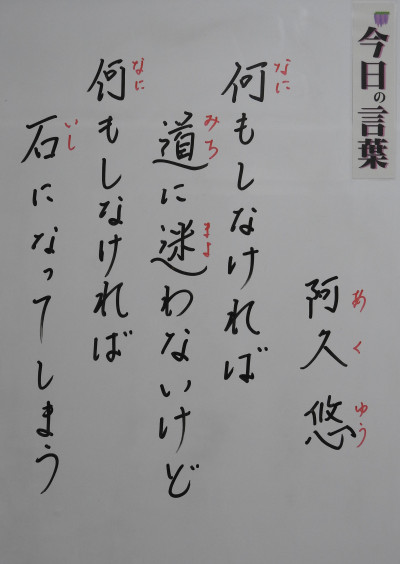 今日の言葉
阿久悠
あくゆう
何もしなければ
なに
道に迷わないけど
みち
まよ
何もしなければ
なに
石になってしまう
いし